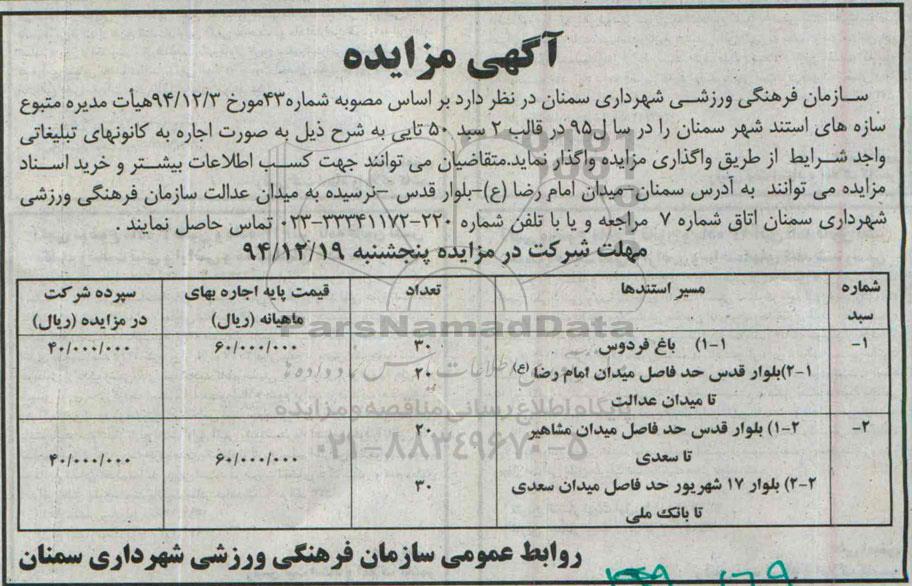 آگهی مزایده
سازمان فرهنگی ورزشی شهرداری سمنان در نظر دارد بر اساس مصوبه شماره۴۳مورخ ۹۴/۱۲/۳هیأت مدیره متبوع
سازه های استند شهر سمنان را در سا ل۹۵ در قالب ۲ سبد ۵۰ تایی به شرح ذیل به صورت اجاره به کانونهای تبلیغاتی
واجد شرایط از طریق واگذاری مزایده واگذار نماید.متقاضیان می توانند جهت کسب اطلاعات بیشتر و خرید اسناد
مزایده می توانند به آدرس سمنان-میدان امام رضا (ع)-بلوار قدس -نرسیده به میدان عدالت سازمان فرهنگی ورزشی
شهرداری سمنان اتاق شماره ۷ مراجعه و یا با تلفن شماره ۲۲۰-۳۳۳۴۱۱۷۲-۰۲۳ تماس حاصل نمایند .
مهلت شرکت در مزایده پنجشنبه ۹۴/۱۲/۱۹
شماره سبد مسیر استندها تعداد قیمت پایه اجاره بهای ماهیانه (ریال) سپرده شرکت در مزایده (ریال)
۱- ۱-۱) باغ فردوس ۳۰ ۶۰/۰۰۰/۰۰۰ ۴۰/۰۰۰/۰۰۰
۲-۱)بلوار قدس حد فاصل میدان امام رضا (ع) ۲۰
تا میدان عدالت
۲- ۱-۲) بلوار قدس حد فاصل میدان مشاهیر ۲۰
تا سعدی ۶۰/۰۰۰/۰۰۰ ۴۰/۰۰۰/۰۰۰
۲-۲) بلوار ۱۷ شهریور حد فاصل میدان سعدی ۳۰
تا بانک ملی
روابط عمومی سازمان فرهنگی ورزشی شهرداری سمنان
ParsNamadData
پایگاه اطلاع رسانی مناقصه و مزایده
۰۲۱-۸۸۳۴۹۶۷۰-۵